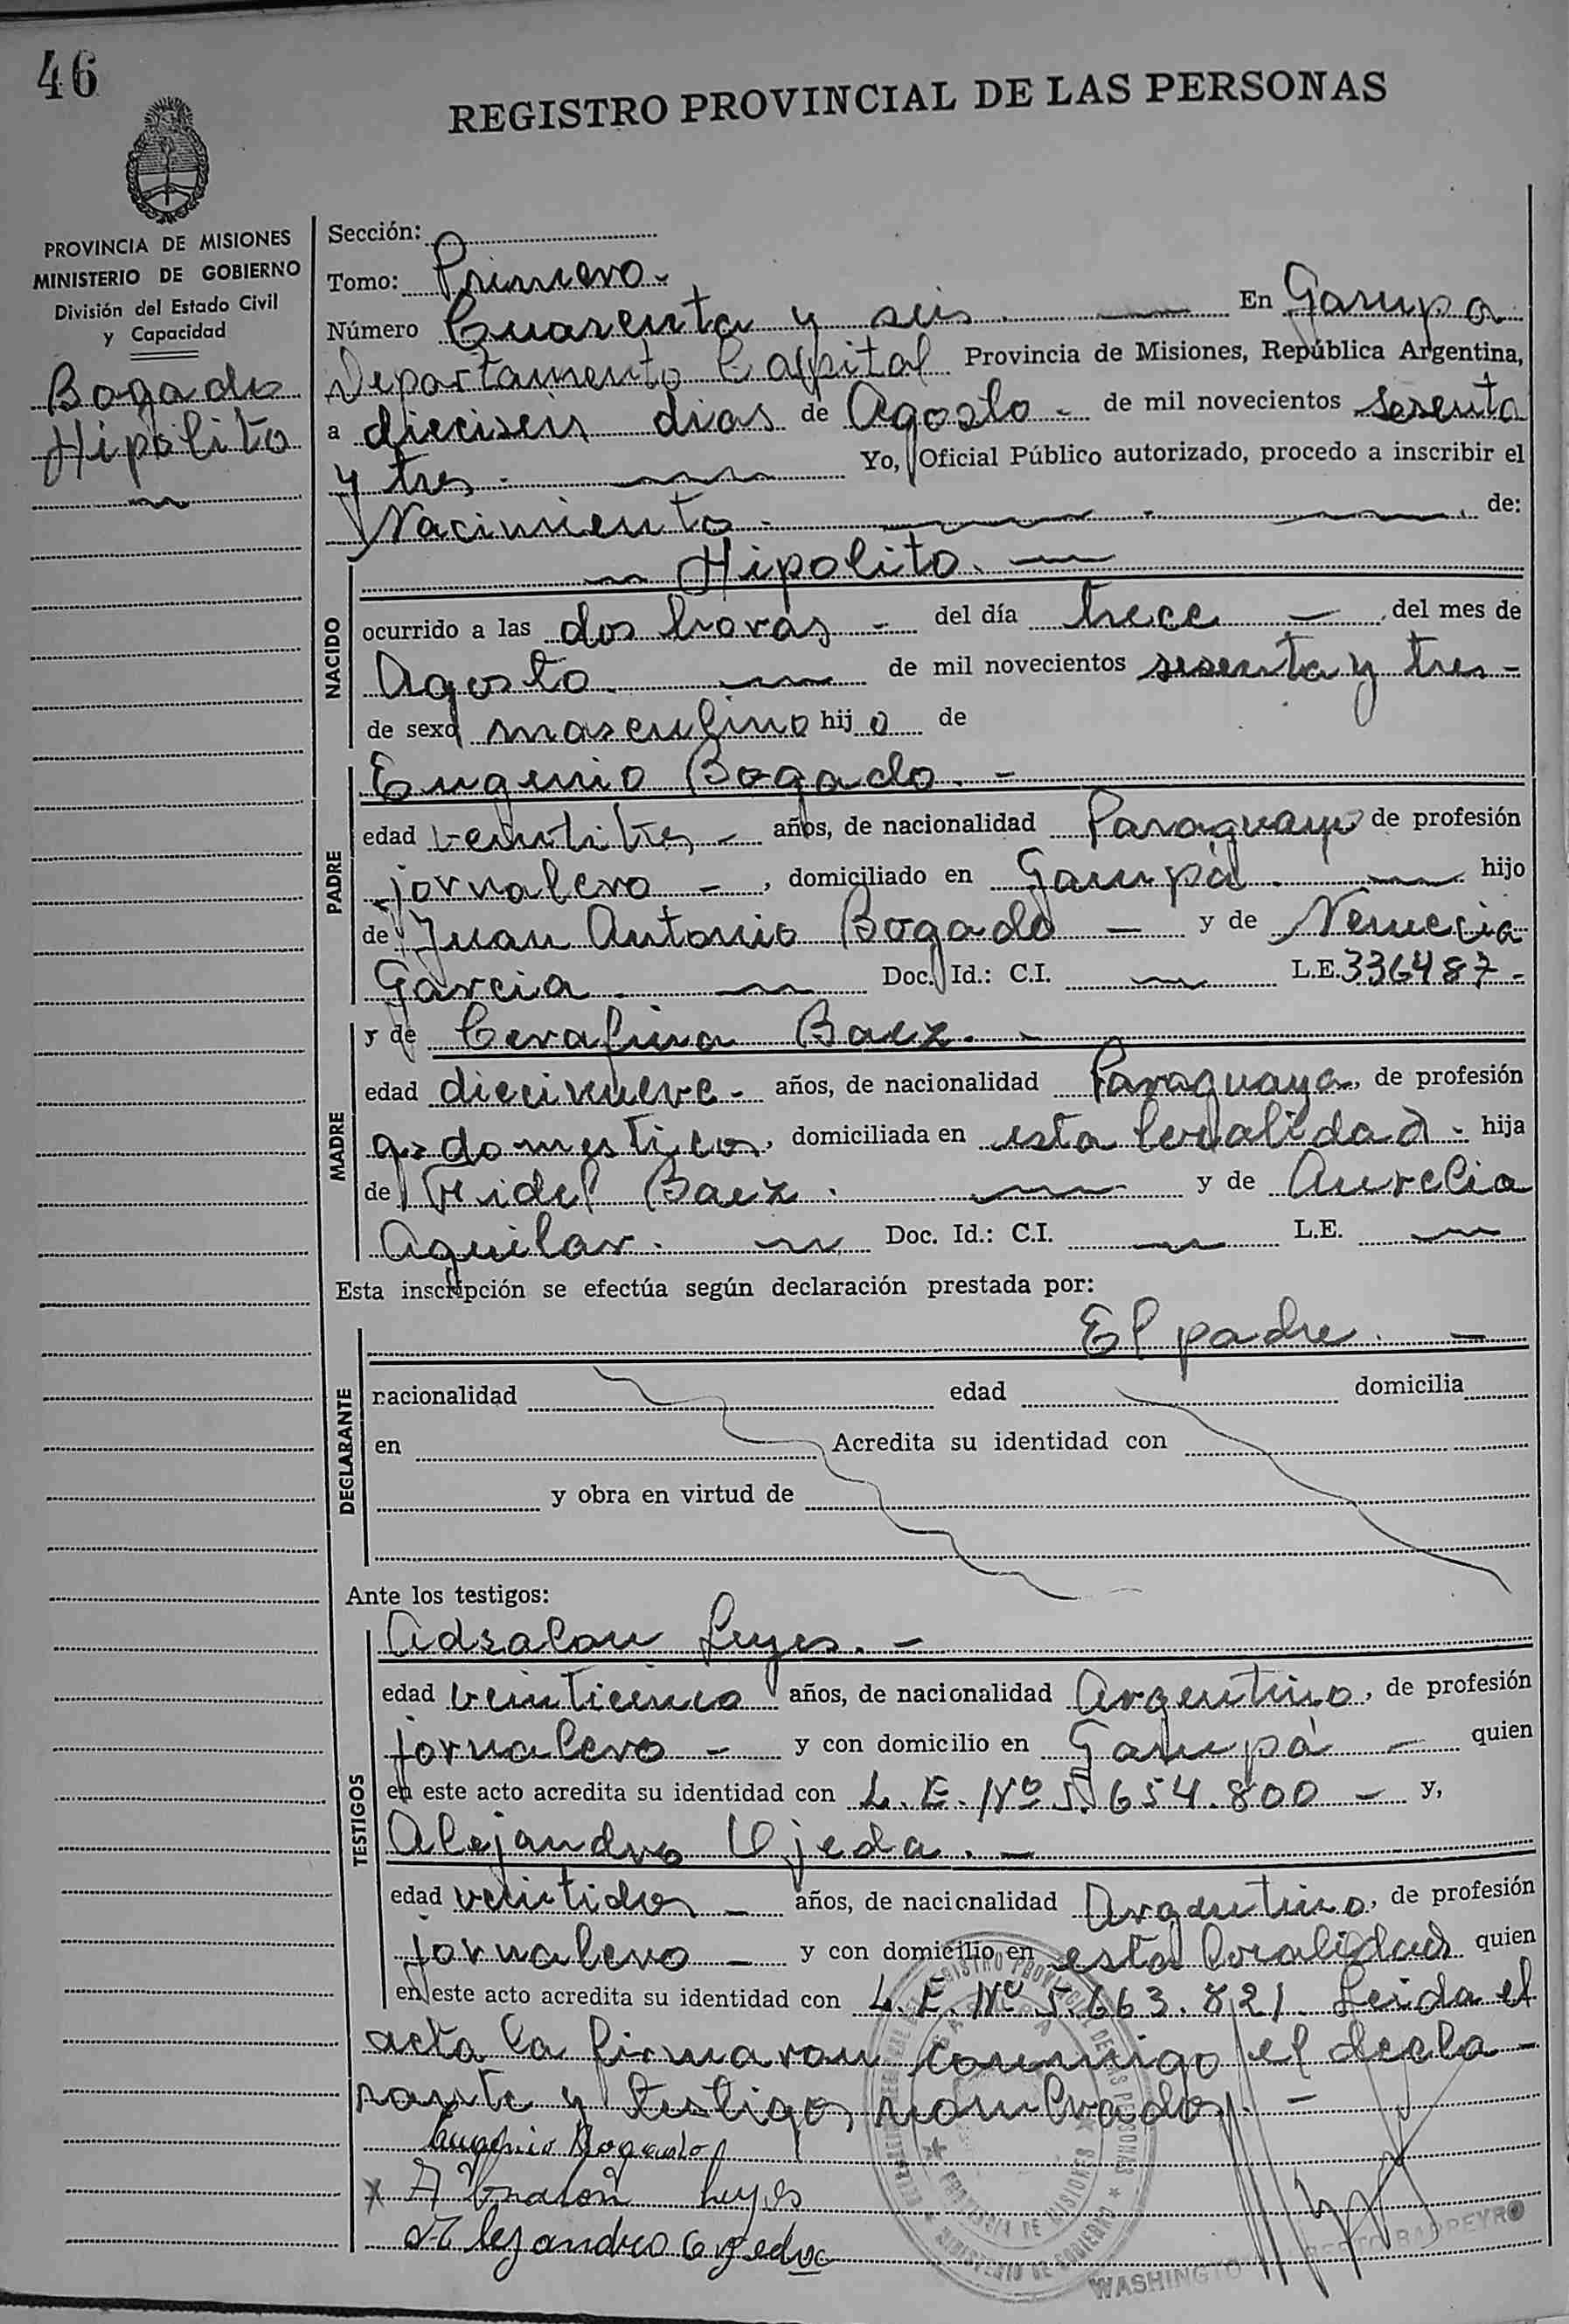 46
REGISTRO PROVINCIAL DE LAS PERSONAS
PROVINCIA DE MISIONES
MINISTERIO DE GOBIERNO
División del Estado Civil
y Capacidad
Bogado
Hipólito
Sección:
Tomo: Primero.
Número Cuarenta y seis. En Garupa
Departamento Capital Provincia de Misiones, República Argentina,
a dieciseis dias de Agosto de mil novecientos sesenta
y tres. Yo, Oficial Público autorizado, procedo a inscribir el
Nacimiento. de:
Hipolito.
NACIDO
ocurrido a las dos horas del día trece del mes de
Agosto. de mil novecientos sesenta y tres
de sexo masculino hijo de
PADRE
Eugenio Bogado.
edad veintitres años, de nacionalidad Paraguayo de profesión
jornalero, domiciliado en Garupá. hijo
de Juan Antonio Bogado y de
Garcia. Doc. Id.: C.I. L.E. 336487
MADRE
y de Cerafina Baez.
edad diecinueve años, de nacionalidad Paraguaya, de profesión
q> domesticos, domiciliada en esta localidad hija
de Fidel Baez. y de Aurelia
Aguilar. Doc. Id.: C.I. L.E.
Esta inscripción se efectúa según declaración prestada por:
El padre.
DECLARANTE
nacionalidad edad domicilia
en Acredita su identidad con
y obra en virtud de
Ante los testigos:
TESTIGOS
Adsalon Leyes.
edad veinticinco años, de nacionalidad Argentino, de profesión
jornalero y con domicilio en Garupá quien
en este acto acredita su identidad con L. E. Nº 5.654.800 y,
Alejandro Ojeda.
edad veintidos años, de nacionalidad Argentino, de profesión
jornalero y con domicilio en esta localidad quien
en este acto acredita su identidad con L. E. Nº 5.663.821. Leida el
acta la firmaron conmigo el decla-
rante y testigos nombrados.
Eugenio Bogado
Leyes
Alejandro Ojeda
PROVINCIA DE MISIONES
MINISTERIO DE GOBIERNO
WASHINGTON BARREYRO